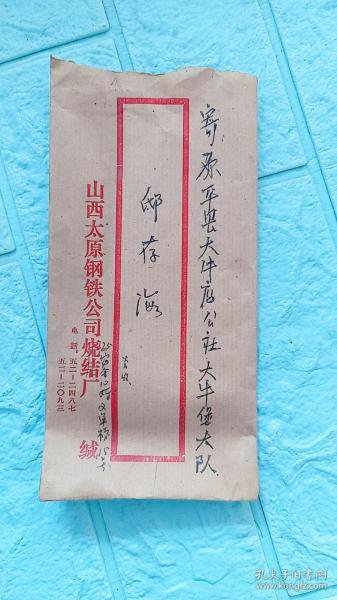 寄原平县大牛店公社大牛堡大队
邸存海
山西太原钢铁公司烧结厂 缄
电話:五二一二四八七
五二一二〇九三
孔夫子旧书网